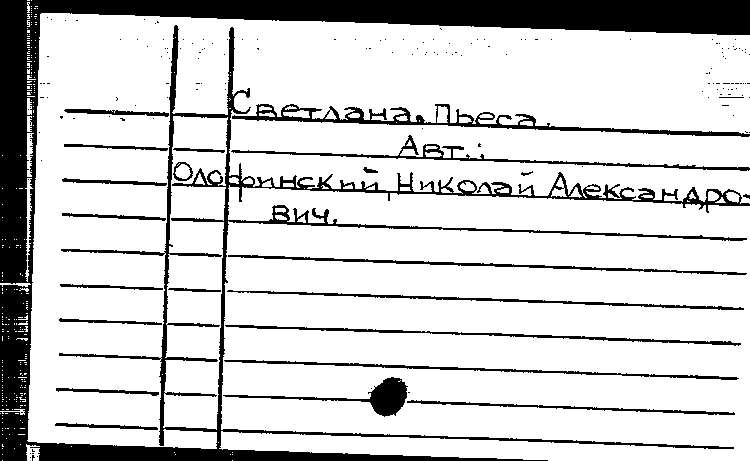 Светлана. Пьеса.
Авт.:
Олофинский, Николай Александро-
вич.